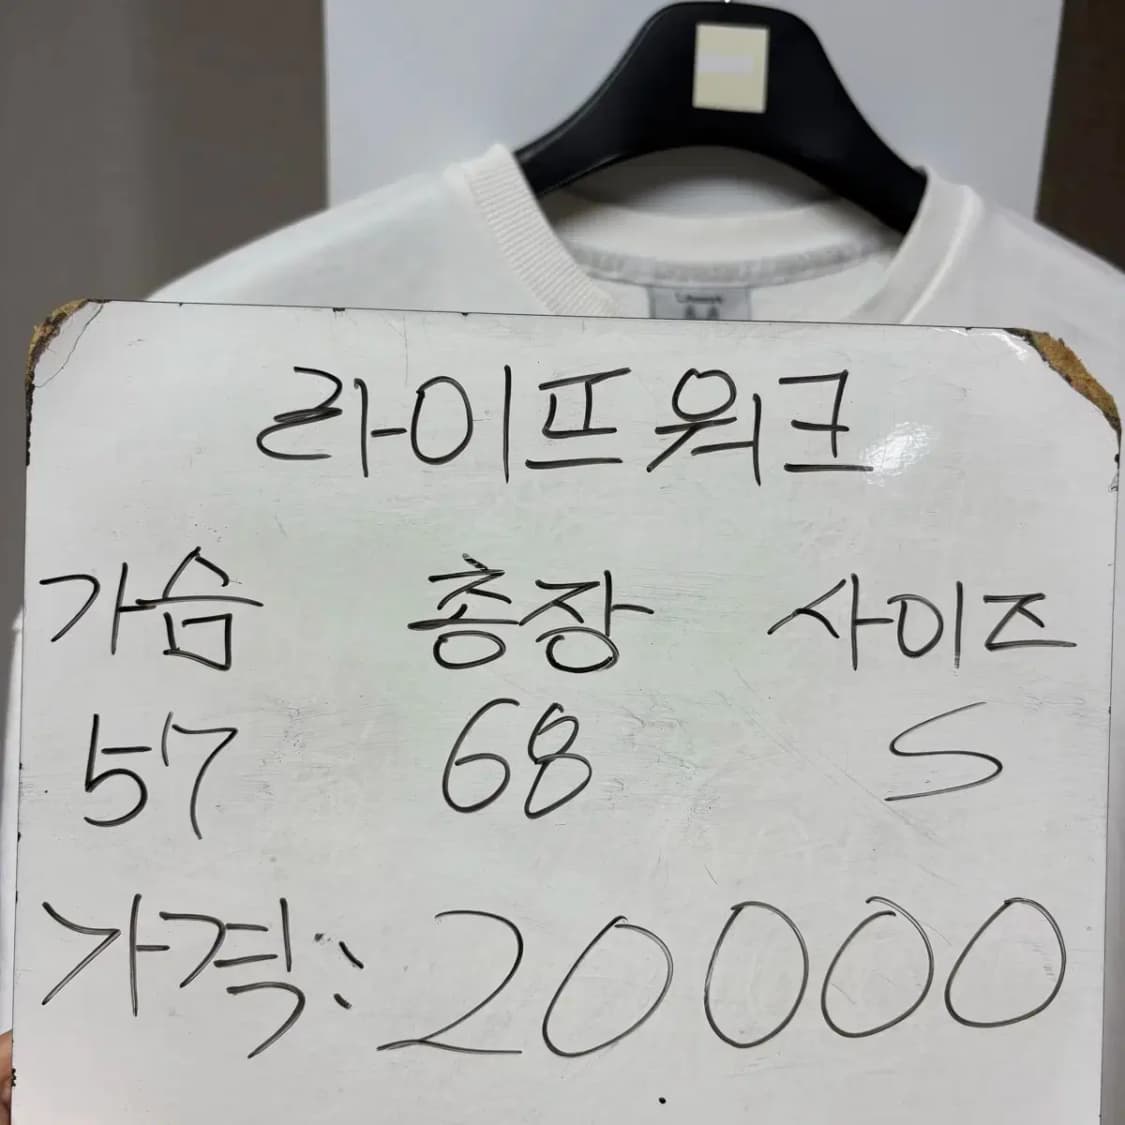 라이프워크
가슴 총장 사이즈
57 68 S
가격: 20000